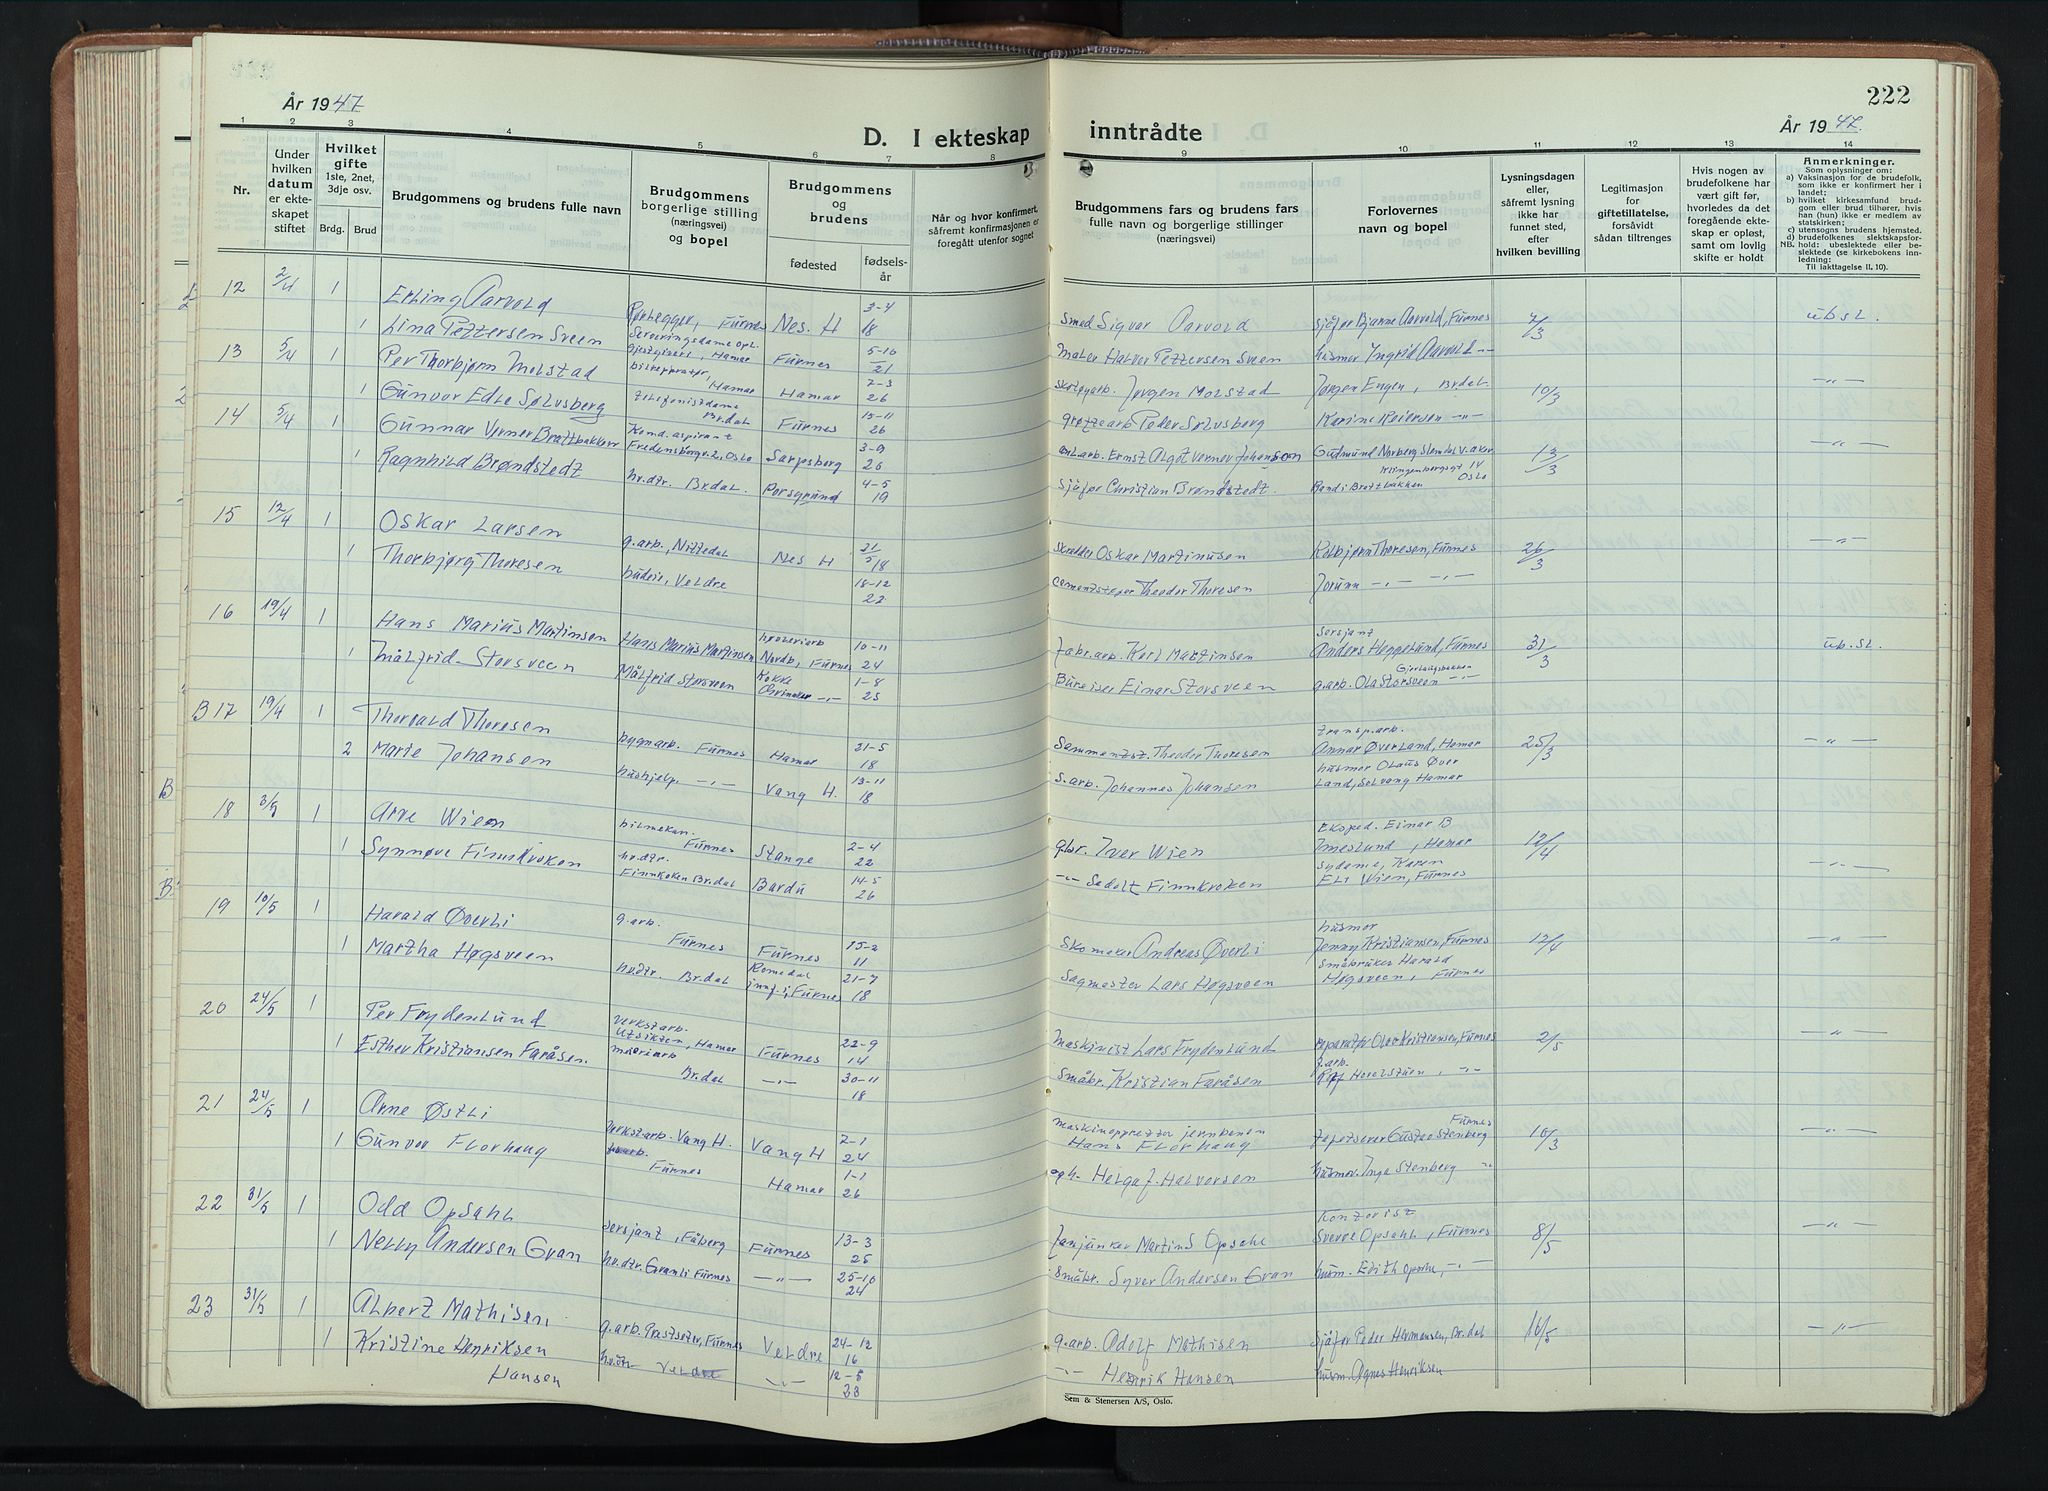 År 1947
D. I ekteskap inntrådte
222
År 1947
1 2 3 4 5 6 7 8 9 10 11 12 13 14
Nr.
Under hvilken datum er ekteskapet stiftet
Hvilket gifte 1ste, 2net, 3dje osv.
Brdg. Brud
Brudgommens og brudens fulle navn
Brudgommens borgerlige stilling (næringsvei) og bopel
Brudgommens og brudens
fødested
fødselsår
Når og hvor konfirmert, såfremt konfirmasjonen er foregått utenfor sognet
Brudgommens fars og brudens fars fulle navn og borgerlige stillinger (næringsvei)
Forlovernes navn og bopel
Lysningsdagen eller, såfremt lysning ikke har funnet sted, efter hvilken bevilling
Legitimasjon for giftetillatelse, forsåvidt sådan tiltrenges
Hvis nogen av brudefolkene har vært gift før, hvorledes da det foregående ekteskap er opløst, samt om lovlig skifte er holdt
Anmerkninger.
Som oplysning om:
a) Vaksinasjon for de brudefolk, som ikke er konfirmert her i landet;
b) hvilket kirkesamfund brudgom eller brud tilhører, hvis han (hun) ikke er medlem av statskirken;
c) utensogns brudens hjemsted.
d) brudefolkenes slektskapsforhold: ubeslektede eller beslektede (se kirkebokens innledning:
NB. Til iakttagelse II. 10).
12 2/4 1 Erling Aarvold Rørlegger, Furnes Nes. H 3-4 18 Smed Sigvar Aarvold sjåfør Bjarne Aarvold, Furnes 7/3 ub sl.
1 Lina Pettersen Sveen Serveringsdame Opl. gjestgiveri, Hamar Furnes 5-10 21 Maler Halvor Pettersen Sveen husmor Ingrid Aarvold -"-
13 5/4 1 Per Thorbjørn Molstad bilreparatør, Hamar Hamar 7-3 26 skotøyarb. Jørgen Molstad Jørgen Engen, Br.dal. 10/3 -"-
1 Gunvor Edle Sølvsberg telefonistdame Br.dal Furnes 15-11 26 grøttearb Peder Sølvsberg Karine Reiersen -"-
14 5/4 1 Gunnar Verner Brattbakken Kond.aspirant Fredensborgv. 2, Oslo Sarpsborg 3-9 26 anl.arb. Ernst Algot Verner Johanson Gudmund Norberg Stendal v.aker 13/3 -"-
1 Ragnhild Brøndstedt hv.dtr. Br.dal. Porsgrund 4-5 19 sjåfør Christian Brøndstedt. Klingenbergsgt IV Oslo Randi Brattbakken
15 12/4 1 Oskar Larsen g.arb., Nittedal Nes H 21/5 18 Skredder Oskar Martinusen Kolbjørn Thoresen, Furnes 26/3 -"-
1 Thorbjørg Thoresen budeie, Veldre 18-12 22 Cementstøper Theodor Thoresen Jorunn -"- -"-
16 19/4 1 Hans Marius Martinsen Hans Marius Martinsen Nordb, Furnes 10-11 24 fabr.arb. Karl Martinsen Sersjant Anders Heggelund, Furnes 31/3 ub.sl.
1 Målfrid Storsveen Målfrid Storsveen Kokke -"- 1-8 25 Bureiser Einar Storsveen g.arb. Ola Storsveen -"-
B 17 19/4 1 Thorvald Thoresen bygn.arb. Furnes Hamar 21-5 18 Sementst. Theodor Thoresen transp.arb. Annar Øverland, Hamar 25/3 -"-
2 Marie Johansen hushjelp. -"- Vang H. 13-11 18 s.arb. Johannes Johansen husmor Olaus Øverland, Solvang Hamar
18 3/5 1 Arve Wien bilmekan. Furnes Stange 2-4 22 gbr. Iver Wien Eksped. Einar B Imeslund, Hamar 12/4 -"-
1 Synnøve Finnkroken hv.dtr. Finnkoken Br.dal Bardu 14-5 26 -"- Sedolt Finnkroken Sydame, Karen Eli Wien, Furnes
19 10/5 1 Harald Øverli g.arb. Furnes Furnes 15-2 11 Skomaker Andreas Øverli husmor Jenny Kristiansen, Furnes 12/4 -"-
1 Martha Høgsveen hv.dtr. Br.dal Romedal innf. i, Furnes 21-7 18 Sagmester Lars Høgsveen Småbruker Harald Høgsveen, Furnes
20 24/5 1 Per Frydenlund verkst.arb. Utsikten, Hamar Furnes 22-9 14 Maskinist Lars Frydenlund reparatør Olav Kristiansen, Furnes 2/5 -"-
1 Esther Kristiansen Faråsen. meieriarb Br.dal -"- 30-11 18 Småbr. Kristian Faråsen
21 24/5 1 Arne Østli Verkst.arb. Vang H. Vang H 7-1 24 Hans Florhaug Tapetserer Gustav Stenberg Furnes 10/3 -"-
1 Gunvor Florhaug Furnes Hamar 1-1 26 Helga f. Halvorsen husmor. Inga Stenberg -"-
22 31/5 1 Odd Opsahl sersjant, Fåberg Furnes 13-3 25 Fanjunker Martin S Opsahl Kontorist Sverre Opsahl, Furnes 8/5 -"-
1 Nelly Andersen Gran hv.dtr. Granli Furnes -"- 25-10 24 Småbr. Syver Andersen Gran husm. Edith Opsahl, -"-
23 31/5 1 Albert Mathisen g.arb. Prestseter, Furnes Veldre 24-12 16 g.arb. Adolf Mathisen sjåfør Peder Hermansen, Br.dal 16/5 -"-
1 Kristine Henriksen Hansen Veldre -"- 12-5 23 -"- Henrik Hansen husm. Agnes Henriksen
Sem & Stenersen A/S, Oslo.